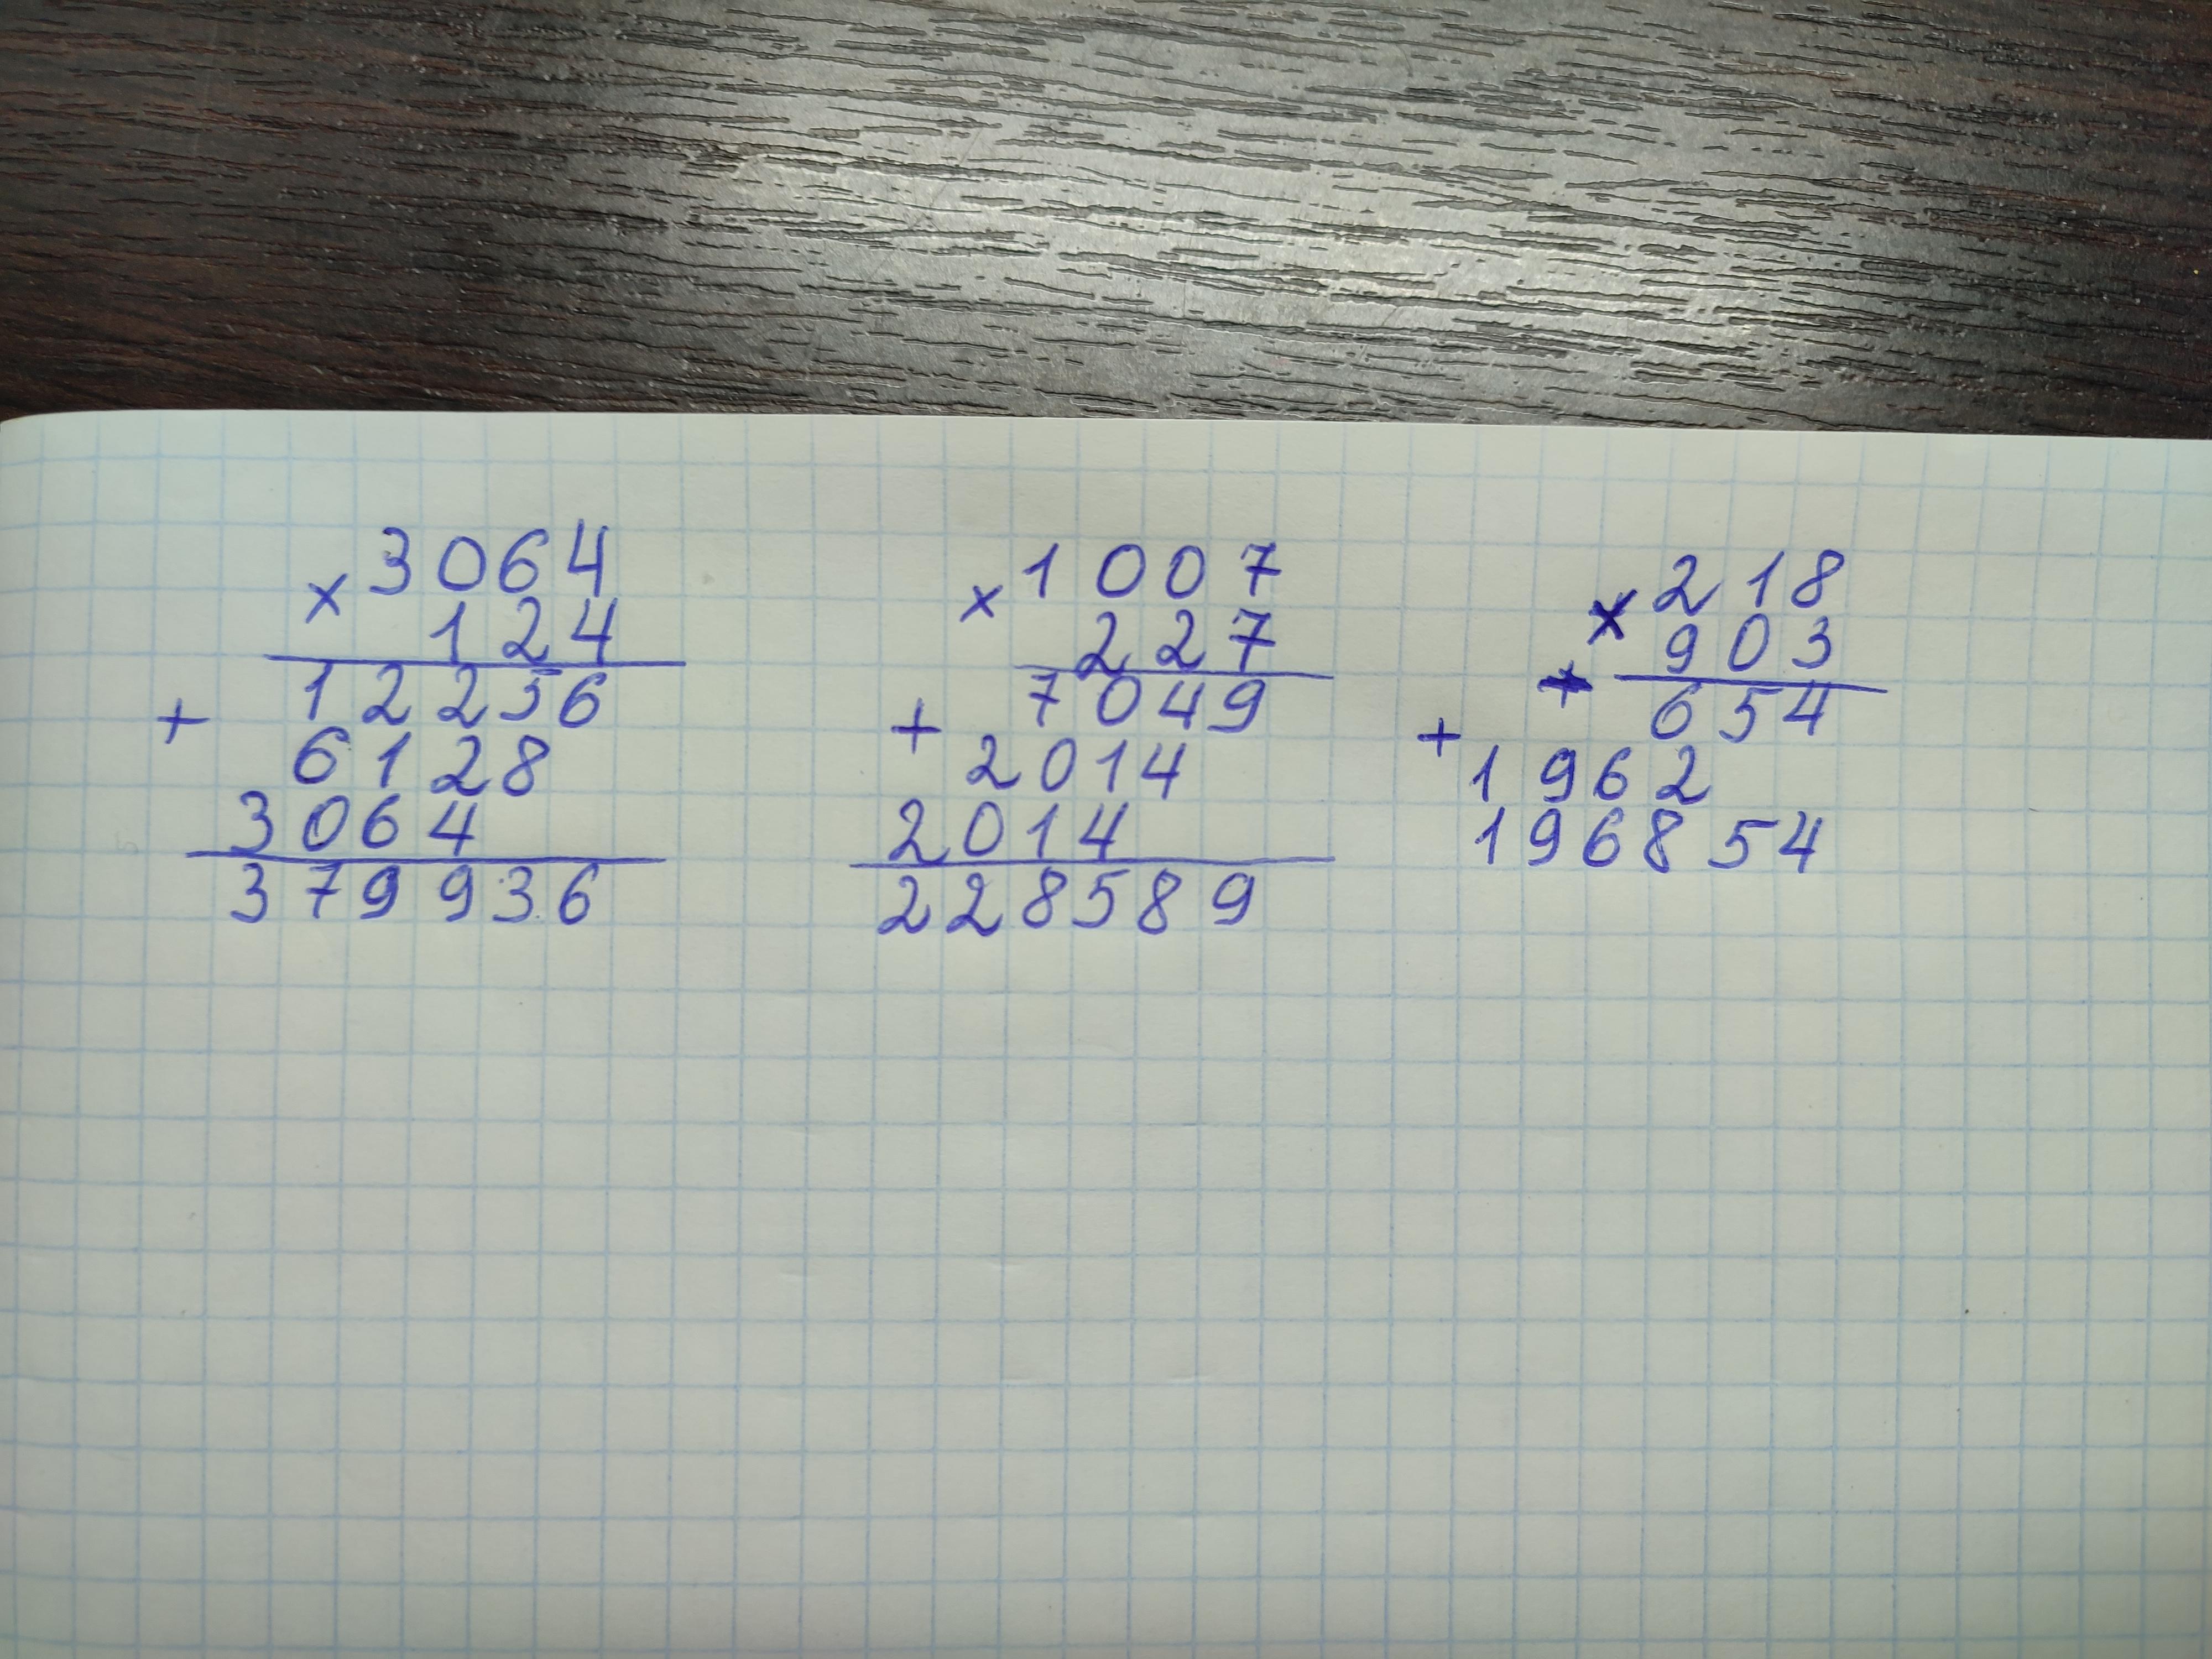 × 3064
124
+ 12256
6128
3064
379936
× 1007
227
+ 7049
2014
2014
228589
× 218
903
+ 654
+ 1962
196854